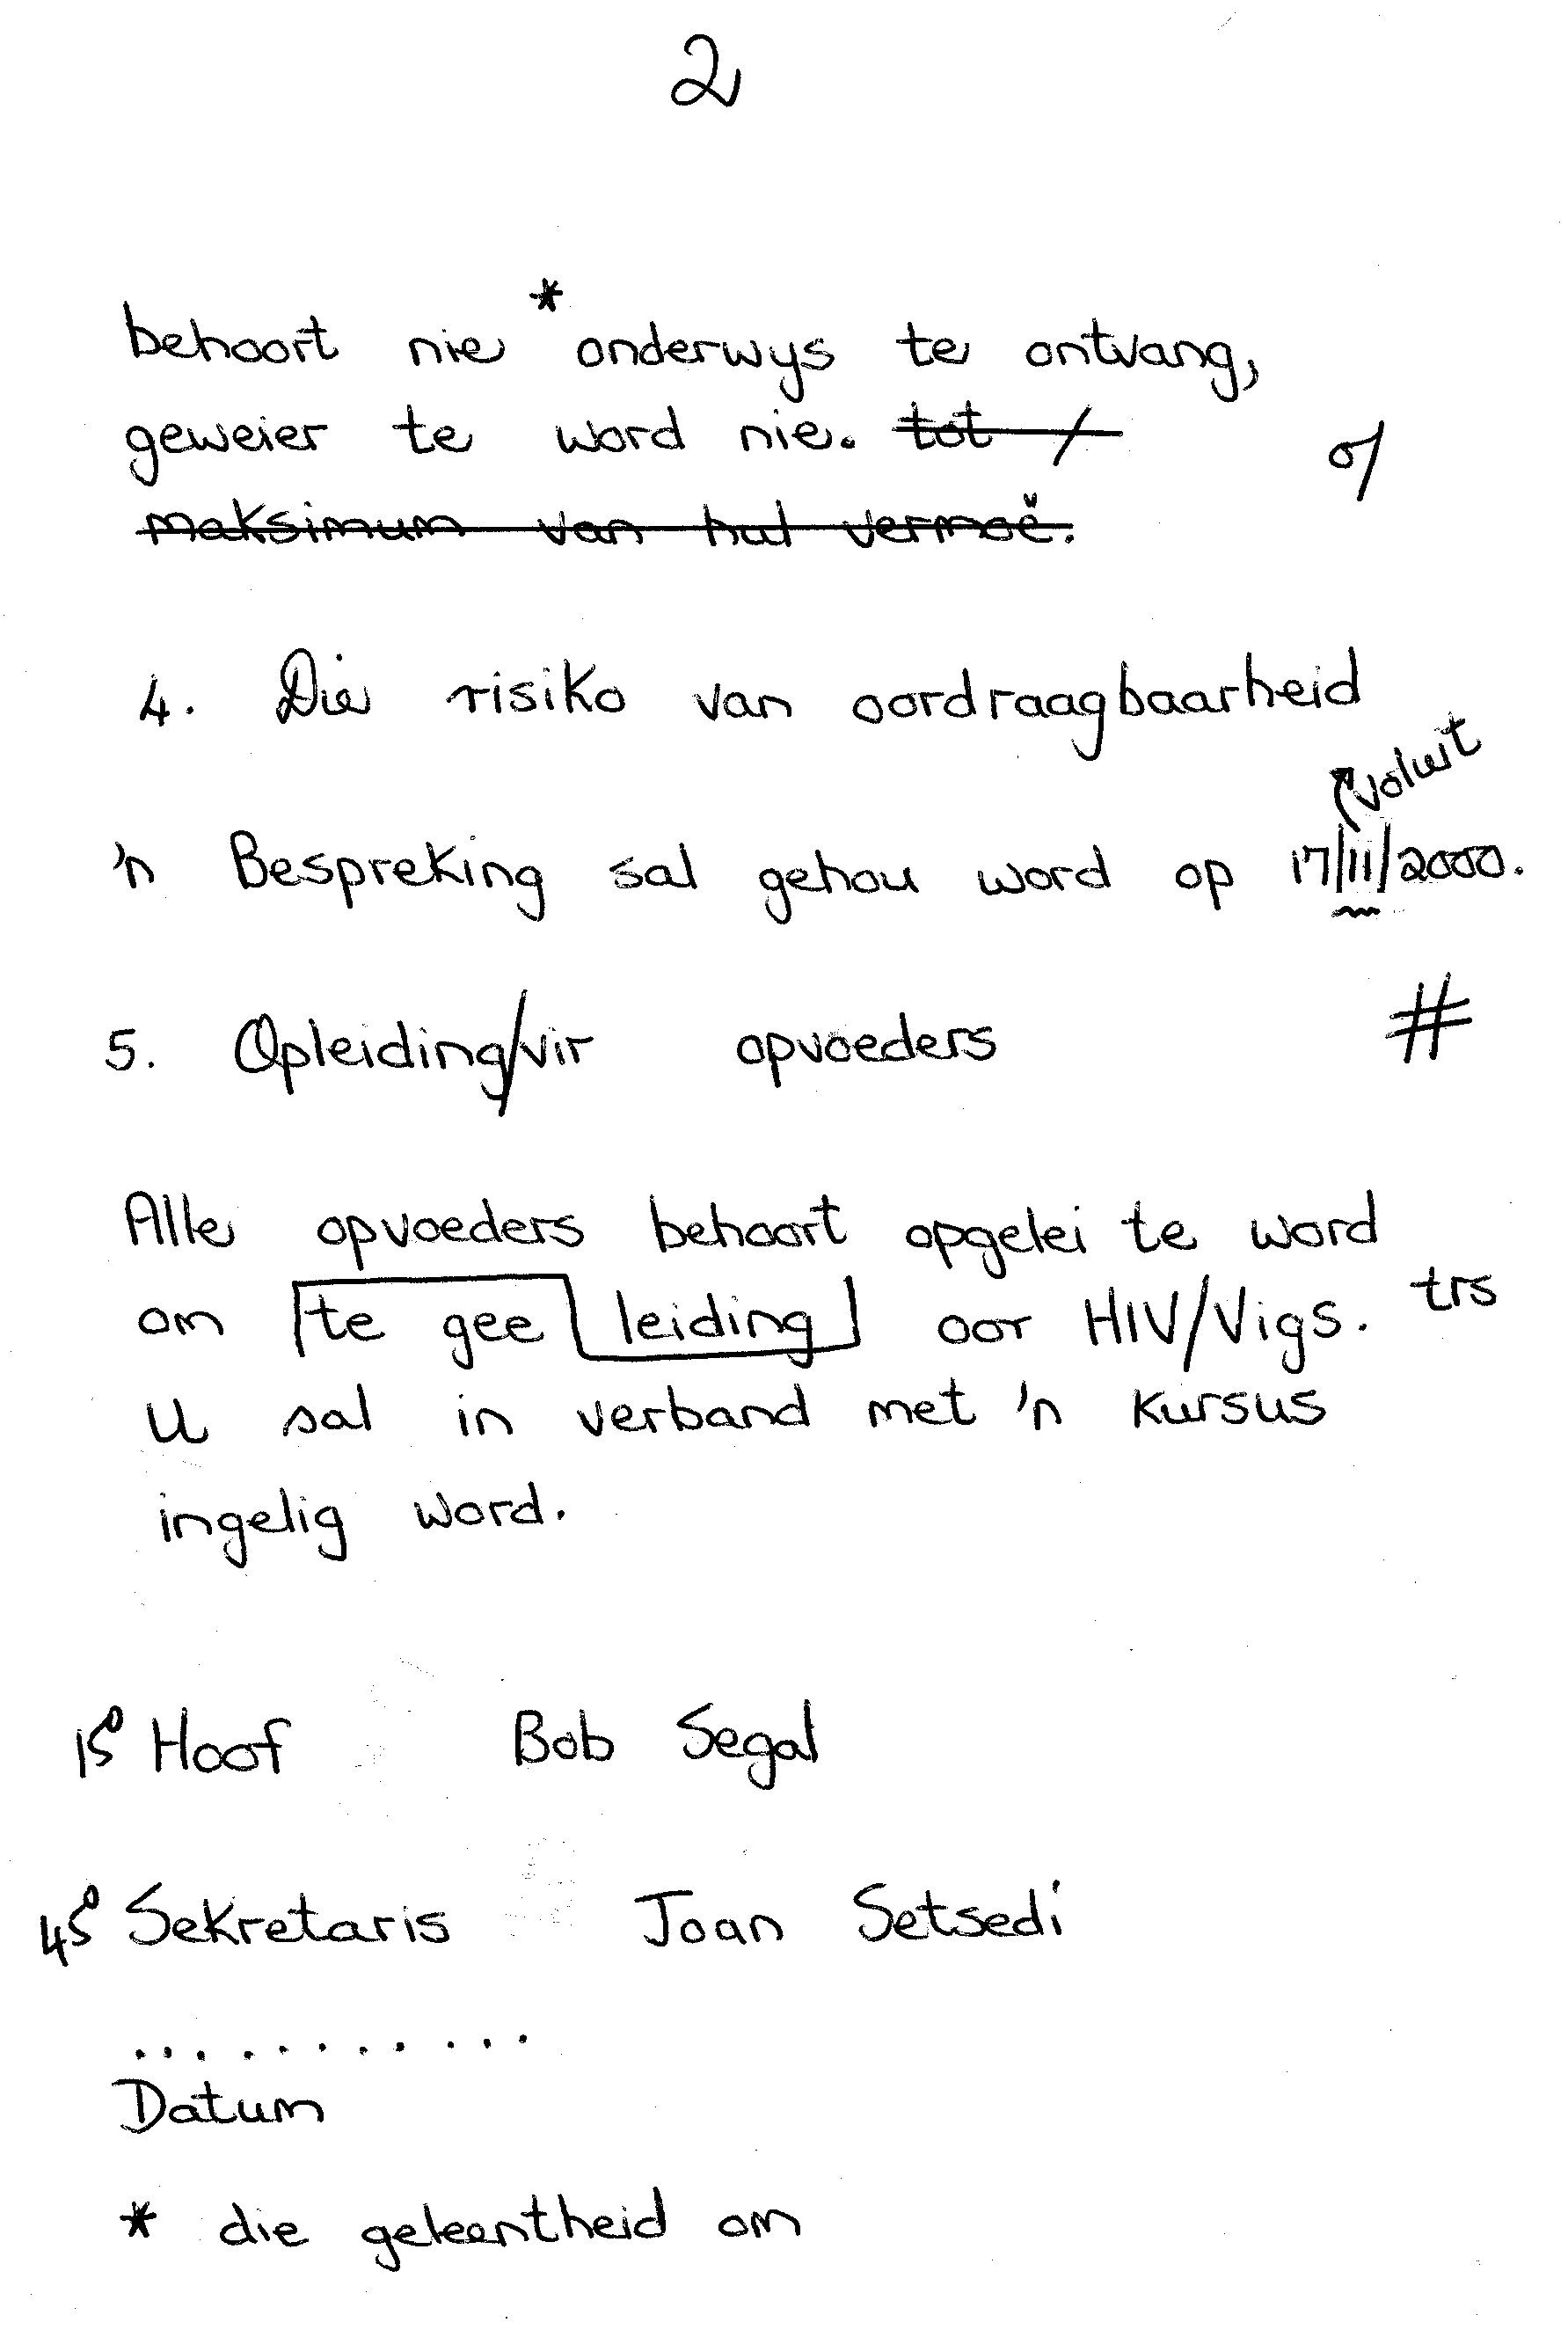 2
behoort nie * onderwys te ontvang,
geweier te word nie. tot /
maksimum van hul vermoë.
4. Die risiko van oordraagbaarheid
voluit
'n Bespreking sal gehou word op 17/11/2000.
5. Opleiding/vir opvoeders #
Alle opvoeders behoort opgelei te word
om te gee leiding oor HIV/Vigs. trs
U sal in verband met 'n kursus
ingelig word.
15 Hoof Bob Segal
45 Sekretaris Joan Setsedi
...........
Datum
* die geleentheid om